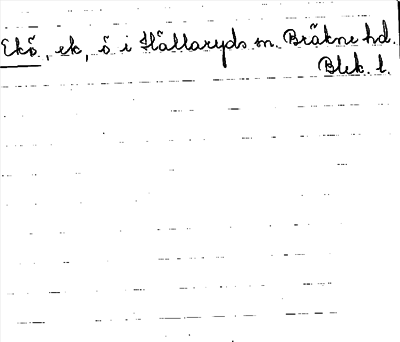 Ekö, ek, ö i Hällaryds sn. Bräkne hd.
Blek. l.